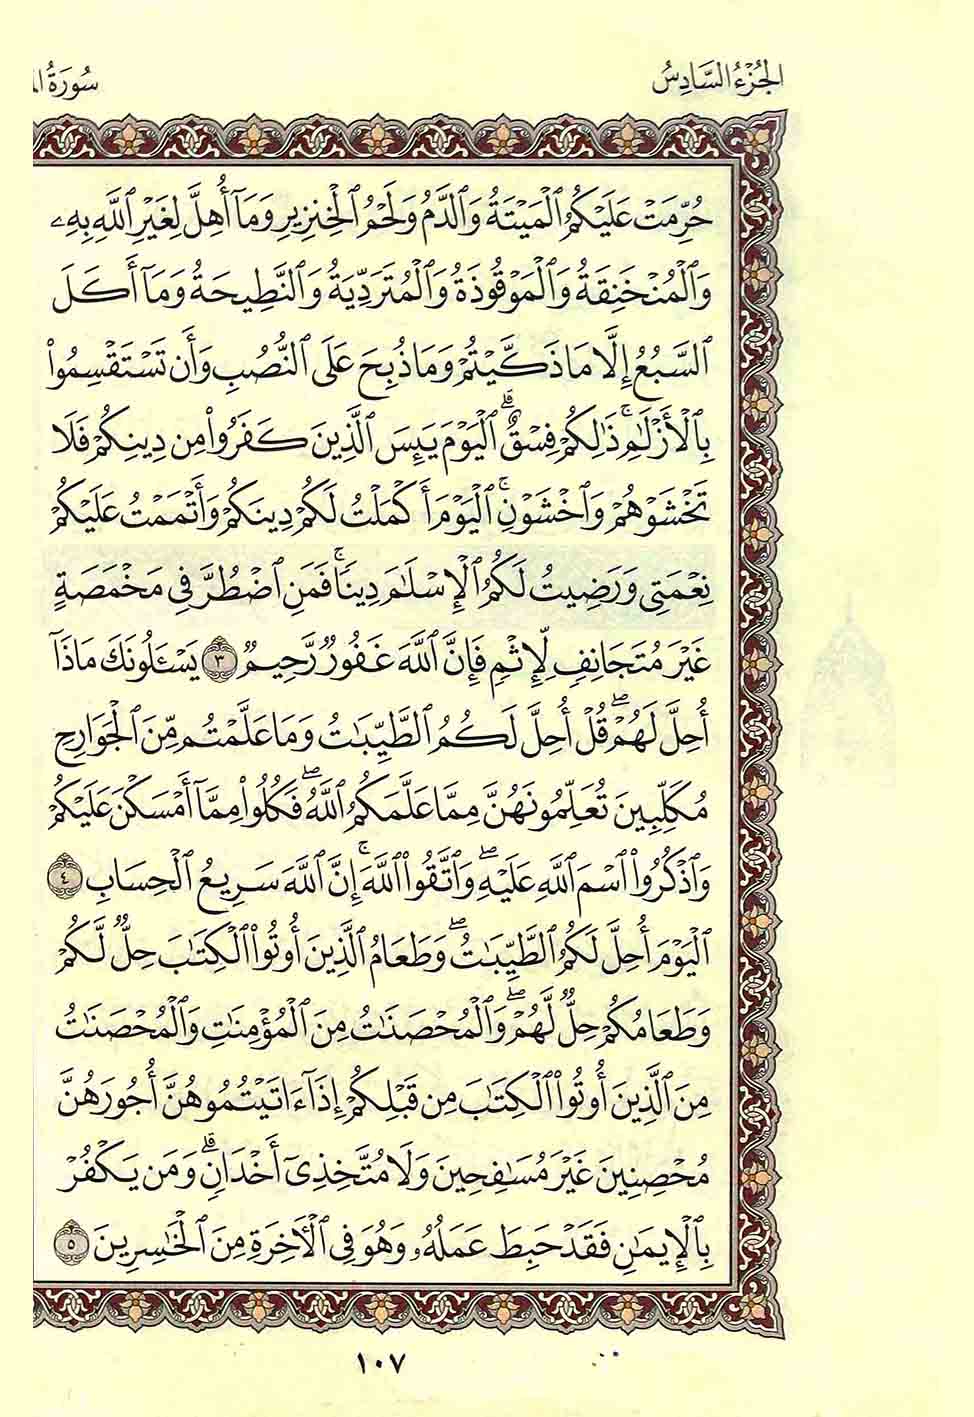 الجُزْءُ السَّادِسُ
سُورَةُ
حُرِّمَتْ عَلَيْكُمُ ٱلْمَيْتَةُ وَٱلدَّمُ وَلَحْمُ ٱلْخِنزِيرِ وَمَآ أُهِلَّ لِغَيْرِ ٱللَّهِ بِهِۦ
وَٱلْمُنْخَنِقَةُ وَٱلْمَوْقُوذَةُ وَٱلْمُتَرَدِّيَةُ وَٱلنَّطِيحَةُ وَمَآ أَكَلَ
ٱلسَّبُعُ إِلَّا مَا ذَكَّيْتُمْ وَمَا ذُبِحَ عَلَى ٱلنُّصُبِ وَأَن تَسْتَقْسِمُوا۟
بِٱلْأَزْلَٰمِ ۚ ذَٰلِكُمْ فِسْقٌ ۗ ٱلْيَوْمَ يَئِسَ ٱلَّذِينَ كَفَرُوا۟ مِن دِينِكُمْ فَلَا
تَخْشَوْهُمْ وَٱخْشَوْنِ ۚ ٱلْيَوْمَ أَكْمَلْتُ لَكُمْ دِينَكُمْ وَأَتْمَمْتُ عَلَيْكُمْ
نِعْمَتِى وَرَضِيتُ لَكُمُ ٱلْإِسْلَٰمَ دِينًا ۚ فَمَنِ ٱضْطُرَّ فِى مَخْمَصَةٍ
غَيْرَ مُتَجَانِفٍ لِّإِثْمٍ فَإِنَّ ٱللَّهَ غَفُورٌ رَّحِيمٌ ٣ يَسْـَٔلُونَكَ مَاذَآ
أُحِلَّ لَهُمْ ۖ قُلْ أُحِلَّ لَكُمُ ٱلطَّيِّبَٰتُ وَمَا عَلَّمْتُم مِّنَ ٱلْجَوَارِحِ
مُكَلِّبِينَ تُعَلِّمُونَهُنَّ مِمَّا عَلَّمَكُمُ ٱللَّهُ ۖ فَكُلُوا۟ مِمَّآ أَمْسَكْنَ عَلَيْكُمْ
وَٱذْكُرُوا۟ ٱسْمَ ٱللَّهِ عَلَيْهِ ۖ وَٱتَّقُوا۟ ٱللَّهَ ۚ إِنَّ ٱللَّهَ سَرِيعُ ٱلْحِسَابِ ٤
ٱلْيَوْمَ أُحِلَّ لَكُمُ ٱلطَّيِّبَٰتُ ۖ وَطَعَامُ ٱلَّذِينَ أُوتُوا۟ ٱلْكِتَٰبَ حِلٌّ لَّكُمْ
وَطَعَامُكُمْ حِلٌّ لَّهُمْ ۖ وَٱلْمُحْصَنَٰتُ مِنَ ٱلْمُؤْمِنَٰتِ وَٱلْمُحْصَنَٰتُ
مِنَ ٱلَّذِينَ أُوتُوا۟ ٱلْكِتَٰبَ مِن قَبْلِكُمْ إِذَآ ءَاتَيْتُمُوهُنَّ أُجُورَهُنَّ
مُحْصِنِينَ غَيْرَ مُسَٰفِحِينَ وَلَا مُتَّخِذِىٓ أَخْدَانٍ ۗ وَمَن يَكْفُرْ
بِٱلْإِيمَٰنِ فَقَدْ حَبِطَ عَمَلُهُۥ وَهُوَ فِى ٱلْـَٔاخِرَةِ مِنَ ٱلْخَٰسِرِينَ ٥
١٠٧